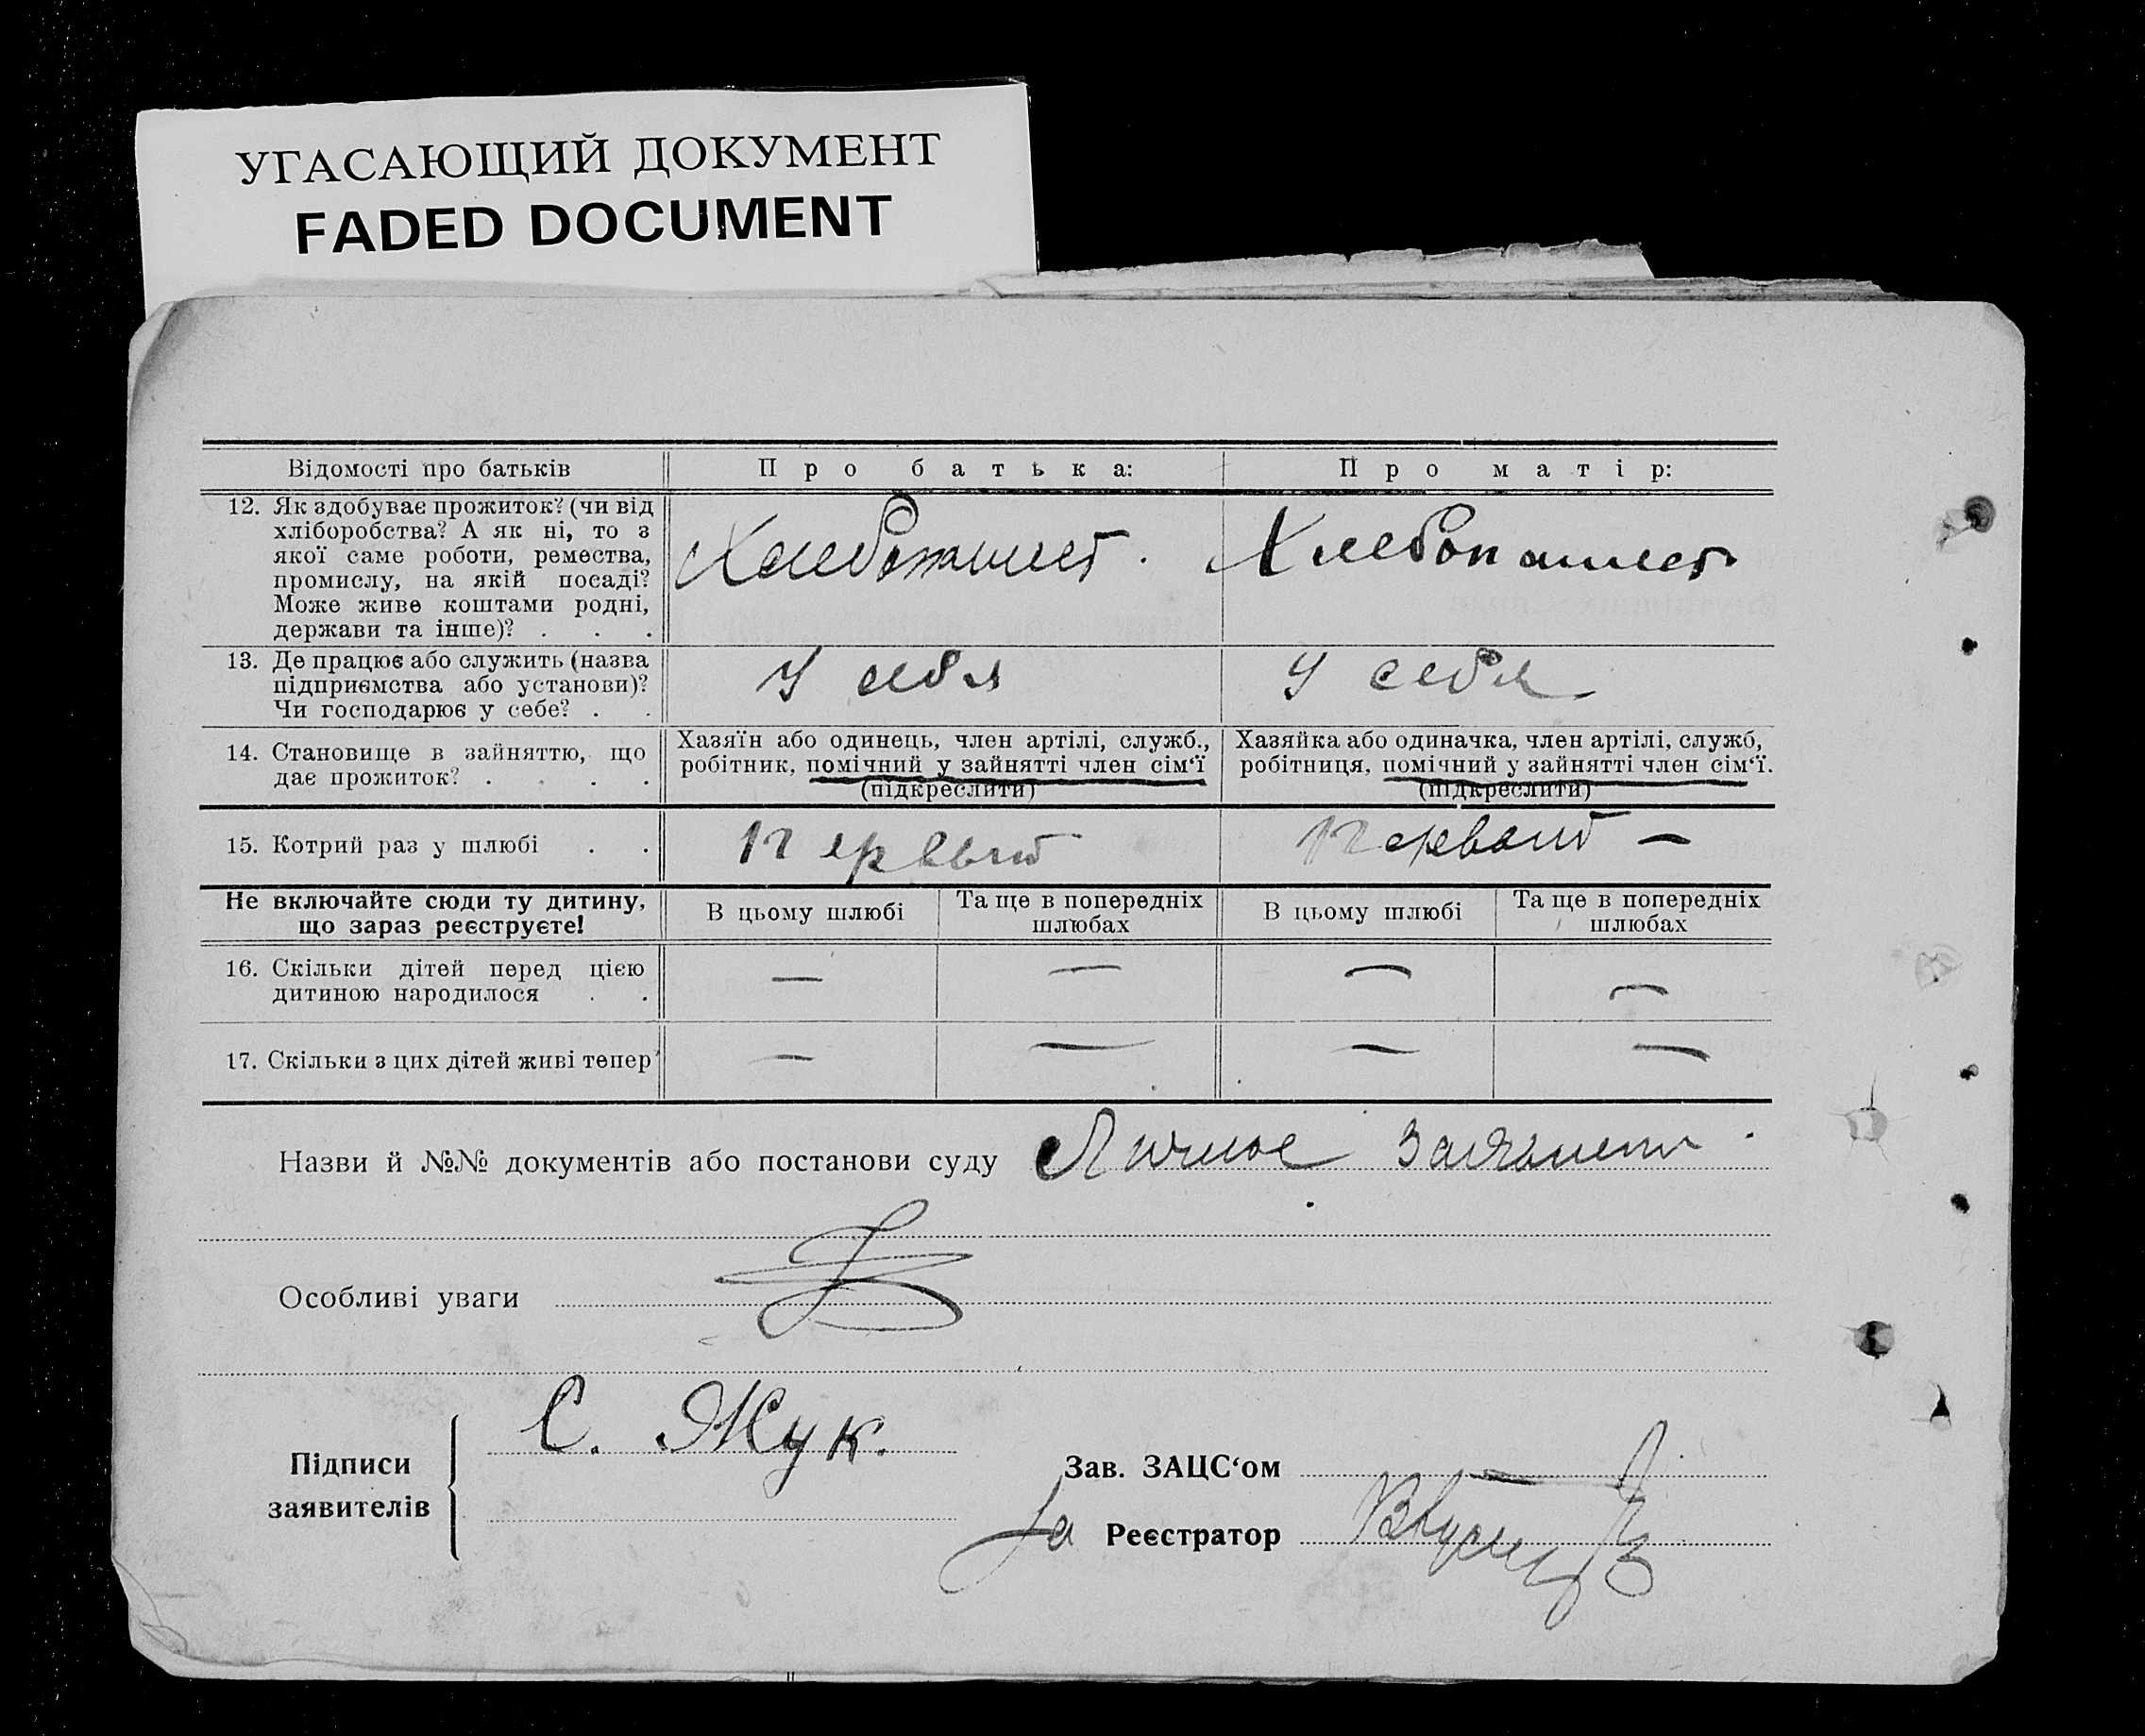 УГАСАЮЩИЙ ДОКУМЕНТ
FADED DOCUMENT
Відомості про батьків
Про батька:
Про матір:
12. Як здобуває прожиток? (чи від
хліборобства? А як ні, то з
якої саме роботи, ремества,
промислу, на якій посаді?
Може живе коштами родні,
держави та інше)? . . .
Хлебопашест.
Хлебопашест
13. Де працює або служить (назва
підприємства або установи)?
Чи господарює у себе? . .
У себя
У себя
14. Становище в зайняттю, що
дає прожиток? . . .
Хазяїн або одинець, член артілі, служб.,
робітник, помічний у зайнятті член сім‘ї
(підкреслити)
Хазяйка або одиначка, член артілі, служб,
робітниця, помічний у зайнятті член сім‘ї.
(підкреслити)
15. Котрий раз у шлюбі . .
Первый
Первый —
Не включайте сюди ту дитину,
що зараз реєструєте!
В цьому шлюбі
Та ще в попередніх
шлюбах
В цьому шлюбі
Та ще в попередніх
шлюбах
16. Скільки дітей перед цією
дитиною народилося . .
— — — —
17. Скільки з цих дітей живі тепер
— — — —
Назви й №№ документів або постанови суду Личное
Особливі уваги
Підписи
заявителів
С. Жук.
Зав. ЗАЦС‘ом
За Реєстратор